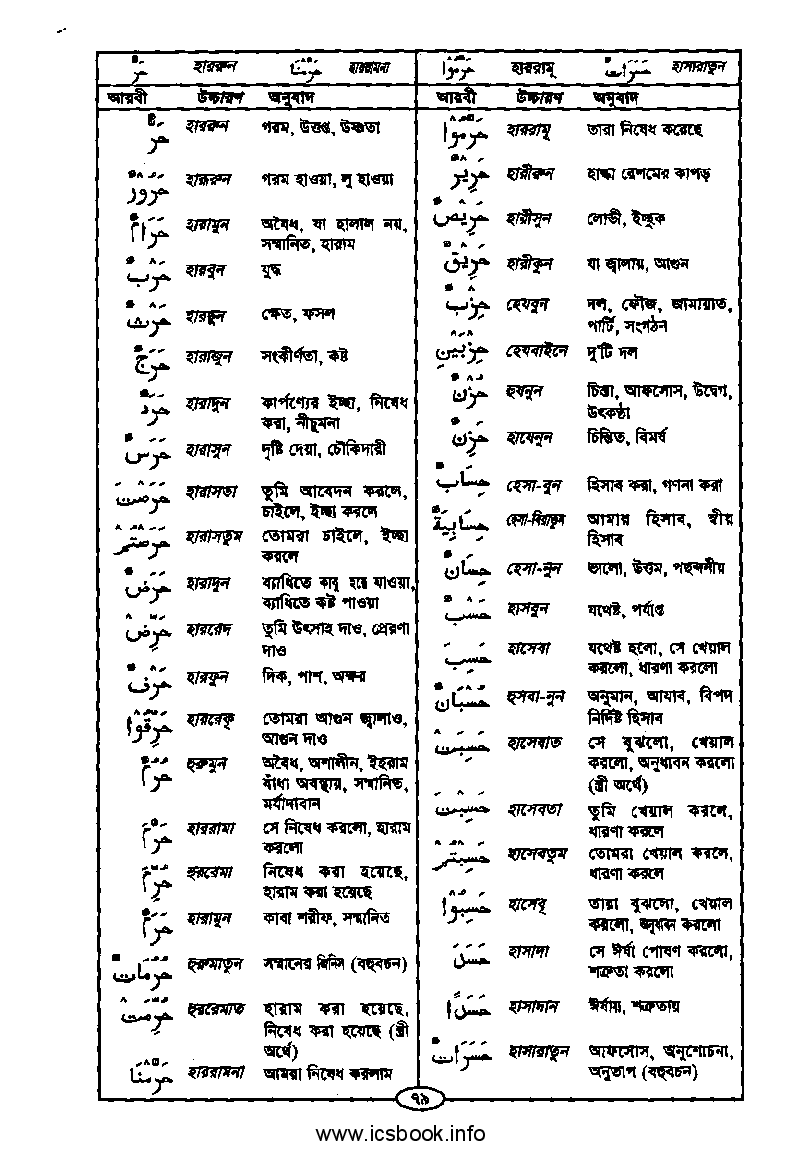 حَرٌّ হাররুন حَرَّمْنَا হাররামনা
আরবী উচ্চারণ অনুবাদ
حَرٌّ হাররুন গরম, উত্তপ্ত, উষ্ণতা
حَرُوْرٌ হারূরুন গরম হাওয়া, লু হাওয়া
حَرَامٌ হারামুন অবৈধ, যা হালাল নয়,
সম্মানিত, হারাম
حَرْبٌ হারবুন যুদ্ধ
حَرْثٌ হারছুন ক্ষেত, ফসল
حَرَجٌ হারাজুন সংকীর্ণতা, কষ্ট
حَرْدٌ হারাদুন কার্পণ্যের ইচ্ছা, নিষেধ
করা, নীচুমনা
حَرَسٌ হারাসুন দৃষ্টি দেয়া, চৌকিদারী
حَرَصْتَ হারাসতা তুমি আবেদন করলে,
চাইলে, ইচ্ছা করলে
حَرَصْتُمْ হারাসতুম তোমরা চাইলে, ইচ্ছা
করলে
حَرَضٌ হারাদুন ব্যাধিতে কাবু হয়ে যাওয়া,
ব্যাধিতে কষ্ট পাওয়া
حَرِّضْ হাররেদ তুমি উৎসাহ দাও, প্রেরণা
দাও
حَرْفٌ হারফুন দিক, পাশ, অক্ষর
حَرِّقُوْا হাররেকূ তোমরা আগুন জ্বালাও,
আগুন দাও
حُرُمٌ হুরুমুন অবৈধ, অশালীন, ইহরাম
বাঁধা অবস্থায়, সম্মানিত,
মর্যাদাবান
حَرَّمَ হাররামা সে নিষেধ করলো, হারাম
করলো
حُرِّمَ হুররেমা নিষেধ করা হয়েছে,
হারাম করা হয়েছে
حَرَمٌ হারামুন কাবা শরীফ, সম্মানিত
حُرُمَاتٌ হুরুমাতুন সম্মানের জিনিস (বহুবচন)
حُرِّمَتْ হুররেমাত হারাম করা হয়েছে,
নিষেধ করা হয়েছে (স্ত্রী
অর্থে)
حَرَّمْنَا হাররামনা আমরা নিষেধ করলাম
حَرَّمُوْا হাররামূ حَسَرَاتٌ হাসারাতুন
আরবী উচ্চারণ অনুবাদ
حَرَّمُوْا হাররামূ তারা নিষেধ করেছে
حَرِيْرٌ হারীরুন হাল্কা রেশমের কাপড়
حَرِيْصٌ হারীসুন লোভী, ইচ্ছুক
حَرِيْقٌ হারীকুন যা জ্বালায়, আগুন
حِزْبٌ হেযবুন দল, ফৌজ, জামায়াত,
পার্টি, সংগঠন
حِزْبَيْنِ হেযবাইনে দু'টি দল
حُزْنٌ হুযনুন চিন্তা, আফসোস, উদ্বেগ,
উৎকণ্ঠা
حَزِنٌ হাযেনুন চিন্তিত, বিমর্ষ
حِسَابٌ হেসা-বুন হিসাব করা, গণনা করা
حِسَابِيَةٌ হেসা-বিয়াতুন আমার হিসাব, স্বীয়
হিসাব
حِسَانٌ হেসা-নুন ভালো, উত্তম, পছন্দনীয়
حَسْبٌ হাসবুন যথেষ্ট, পর্যাপ্ত
حَسِبَ হাসেবা যথেষ্ট হলো, সে খেয়াল
করলো, ধারণা করলো
حُسْبَانٌ হুসবা-নুন অনুমান, আযাব, বিপদ
নির্দিষ্ট হিসাব
حَسِبَتْ হাসেবাত সে বুঝলো, খেয়াল
করলো, অনুধাবন করলো
(স্ত্রী অর্থে)
حَسِبْتَ হাসেবতা তুমি খেয়াল করলে,
ধারণা করলে
حَسِبْتُمْ হাসেবতুম তোমরা খেয়াল করলে,
ধারণা করলে
حَسِبُوْا হাসেবূ তারা বুঝলো, খেয়াল
করলো, অনুধাবন করলো
حَسَدَ হাসাদা সে ঈর্ষা পোষণ করলো,
শত্রুতা করলো
حَسَدًا হাসাদান ঈর্ষায়, শত্রুতায়
حَسَرَاتٌ হাসারাতুন আফসোস, অনুশোচনা,
অনুতাপ (বহুবচন)
৭৯
www.icsbook.info